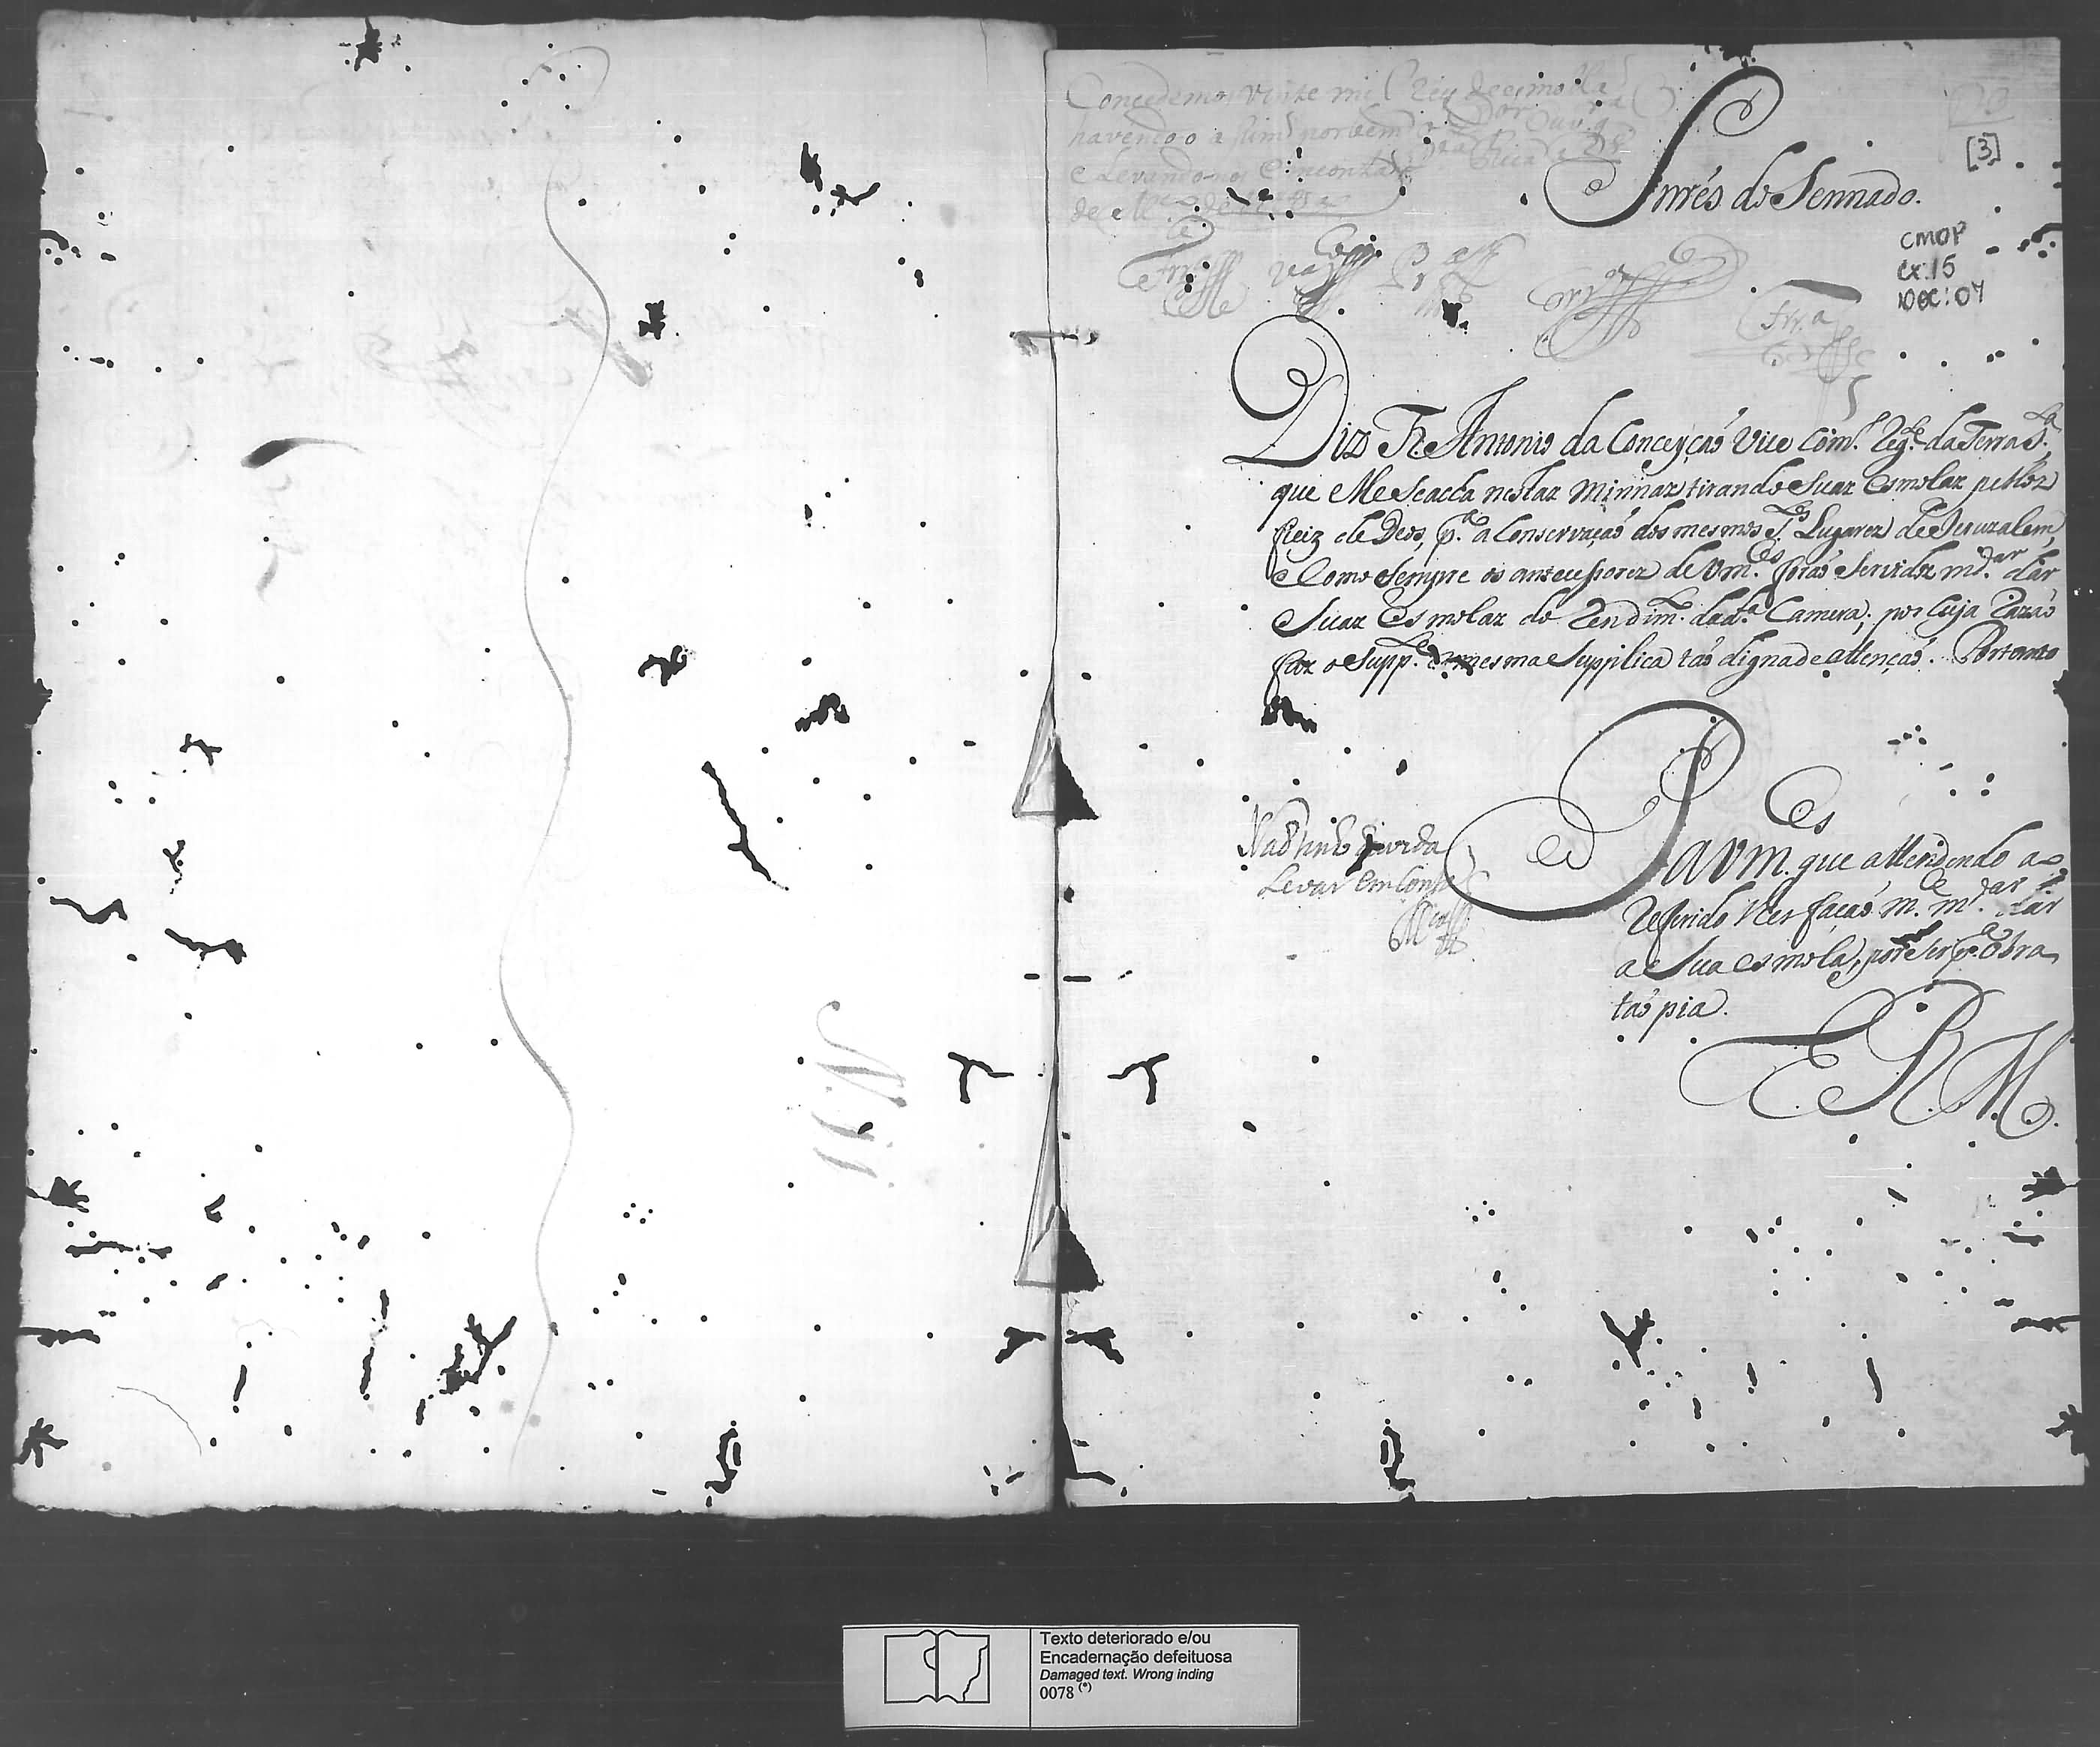 Concedemos vinte mil Reis de esmolla
havendo o assim por bem o Dor Ouvor
e Levandonos Em conta
Snrés do Sennado.
[3]
CMOP
Cx. 15
DOC: 07
Frr.a
Diz Fr. Antonio da Conceyçaõ Vice Com.º Reg.l da Terra S.ta
que elle se acha nestas Minnas tirando suas Esmolas pellos
fieiz de Deos, p.a a Conservaçaõ dos mesmos S.tos Lugares de Jeruzalem,
e Como sempre os antecessores de Vm.ces foraõ servidos m.dar dar
suas Esmolas do Rendim.to da d.a Camera; por cuja Razaõ
faz o Supp.te a mesma Supplica taõ digna de attençaõ. Portanto
P. a Vm.ces que attendendo ao
Referido lhes façaõ m.ce m.dar dar
a sua esmola, por ser p.a obra
taõ pia.
E R M.
Naõ tinho duvida
Levar em Conta
N. 51
Texto deteriorado e/ou
Encadernação defeituosa
Damaged text. Wrong inding
0078 (*)